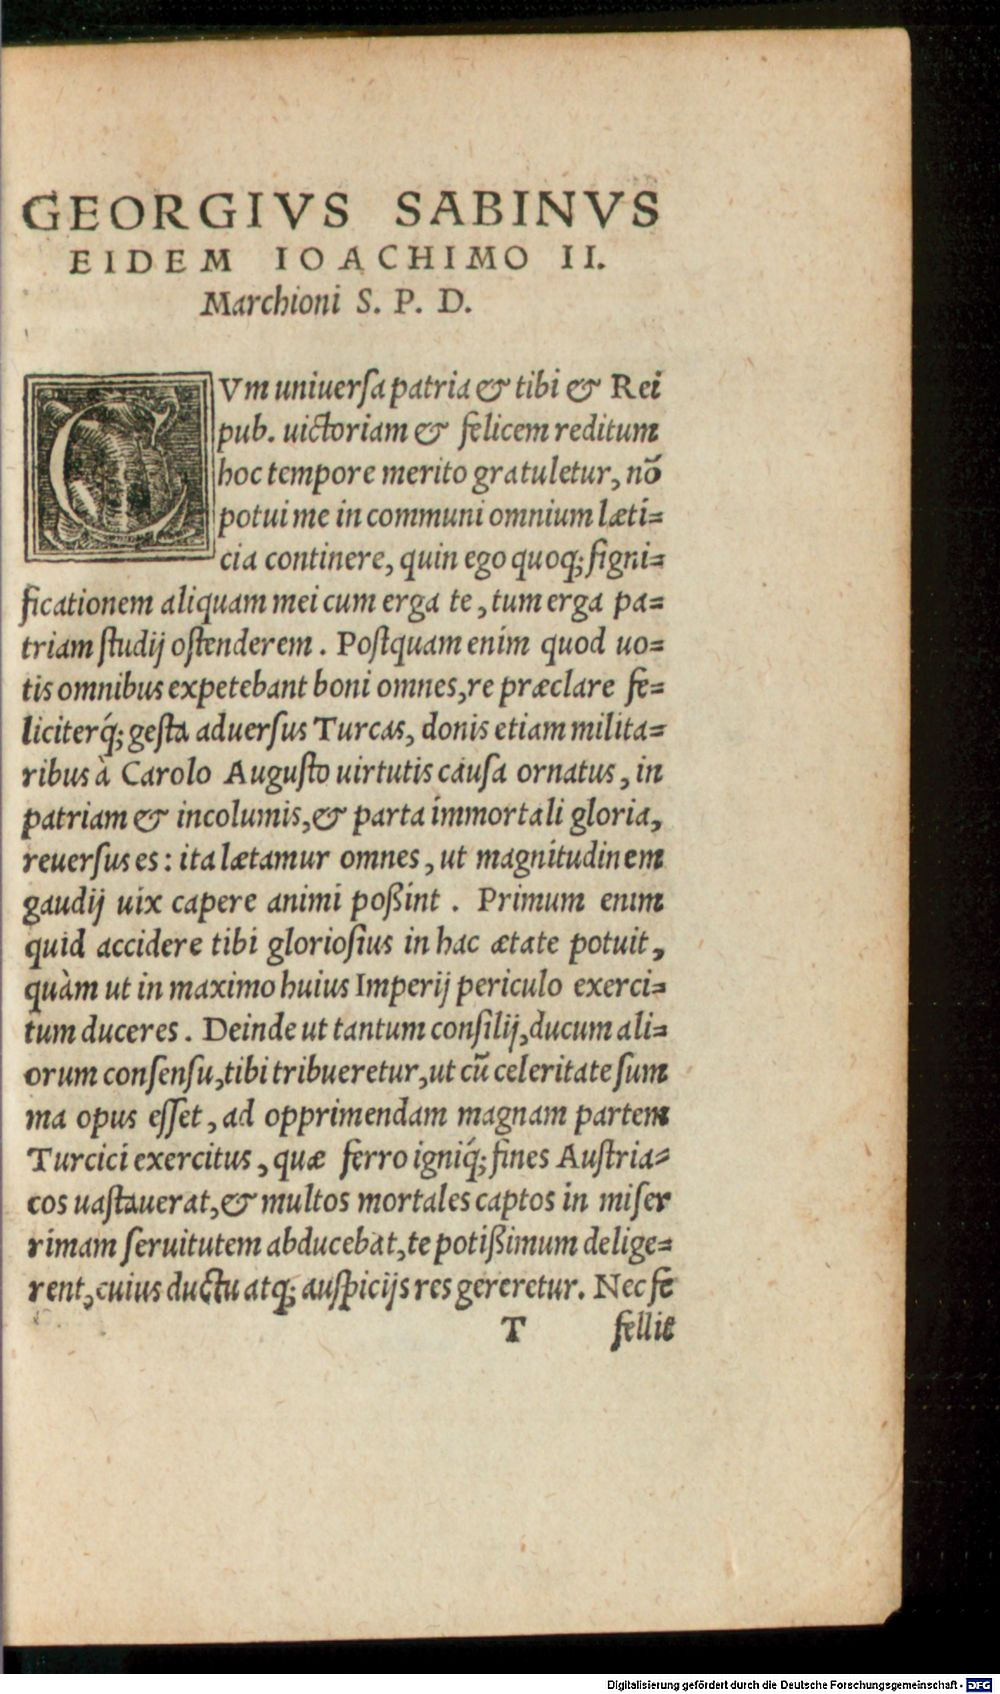 GEORGIVS SABINVS
EIDEM IOACHIMO II.
Marchioni S. P. D.
CVm uniuersa patria & tibi & Rei
pub. uictoriam & felicem reditum
hoc tempore merito gratuletur, nō
potui me in communi omnium læti=
cia continere, quin ego quoq; signi=
ficationem aliquam mei cum erga te, tum erga pa=
triam studij ostenderem. Postquam enim quod uo=
tis omnibus expetebant boni omnes, re præclare fe=
liciterq́; gesta aduersus Turcas, donis etiam milita=
ribus à Carolo Augusto uirtutis causa ornatus, in
patriam & incolumis, & parta immortali gloria,
reuersus es: ita lætamur omnes, ut magnitudinem
gaudij uix capere animi poßint. Primum enim
quid accidere tibi gloriosius in hac ætate potuit,
quàm ut in maximo huius Imperij periculo exerci=
tum duceres. Deinde ut tantum consilij, ducum ali=
orum consensu, tibi tribueretur, ut cū celeritate sum
ma opus esset, ad opprimendam magnam partem
Turcici exercitus, quæ ferro igniq́; fines Austria=
cos uastauerat, & multos mortales captos in miser
rimam seruitutem abducebat, te potißimum delige=
rent, cuius ductu atq; auspicijs res gereretur. Nec fe
T fellit
Digitalisierung gefördert durch die Deutsche Forschungsgemeinschaft - DFG